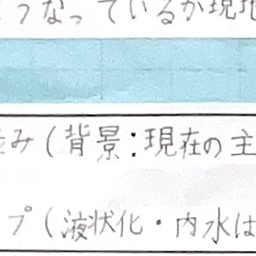 うなっているか現地
み（背景：現在の主
プ（液状化・内水は